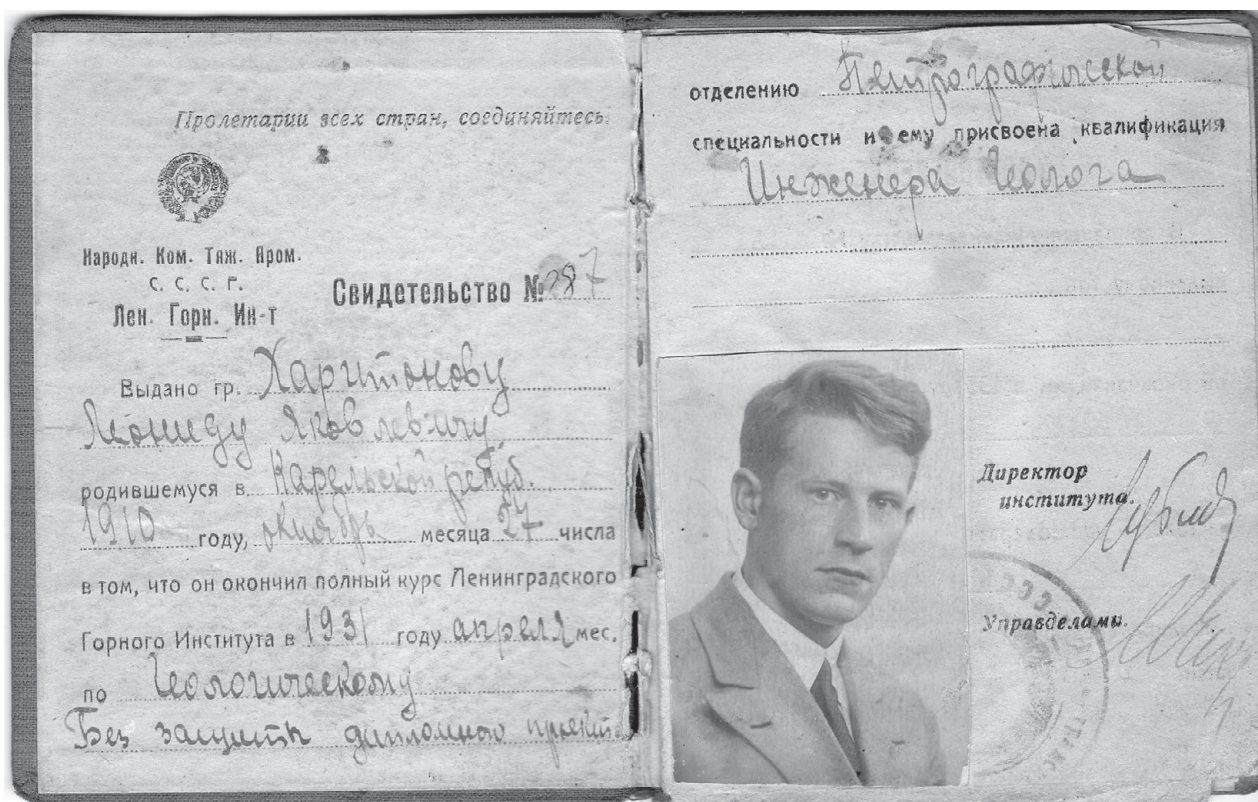 Пролетарии всех стран, соединяйтесь
Народн. Ком. Тяж. Пром.
С. С. С. Р.
Лен. Горн. Ин-т
Свидетельство № 287
Выдано гр. Харитонову
Леониду Яковлевичу
родившемуся в Карельской репуб.
1910 году, октябрь месяца 27 числа
в том, что он окончил полный курс Ленинградского
Горного Института в 1931 году апреля мес.
по Геологическому
Без защиты дипломного проекта
отделению Петрографической
специальности и ему присвоена квалификация
Инженера Геолога
Директор
института.
Управделами.
СССР